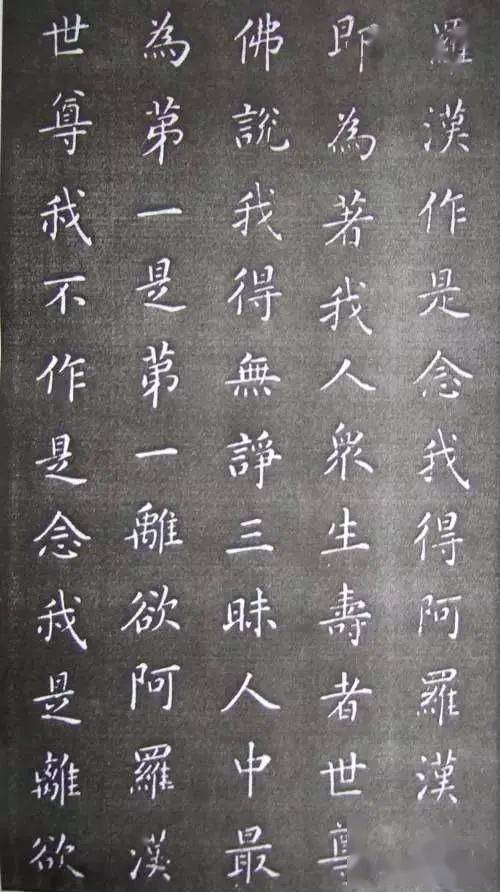 羅漢作是念我得阿羅漢
即為著我人眾生壽者世尊
佛說我得無諍三昧人中最
為第一是第一離欲阿羅漢
世尊我不作是念我是離欲